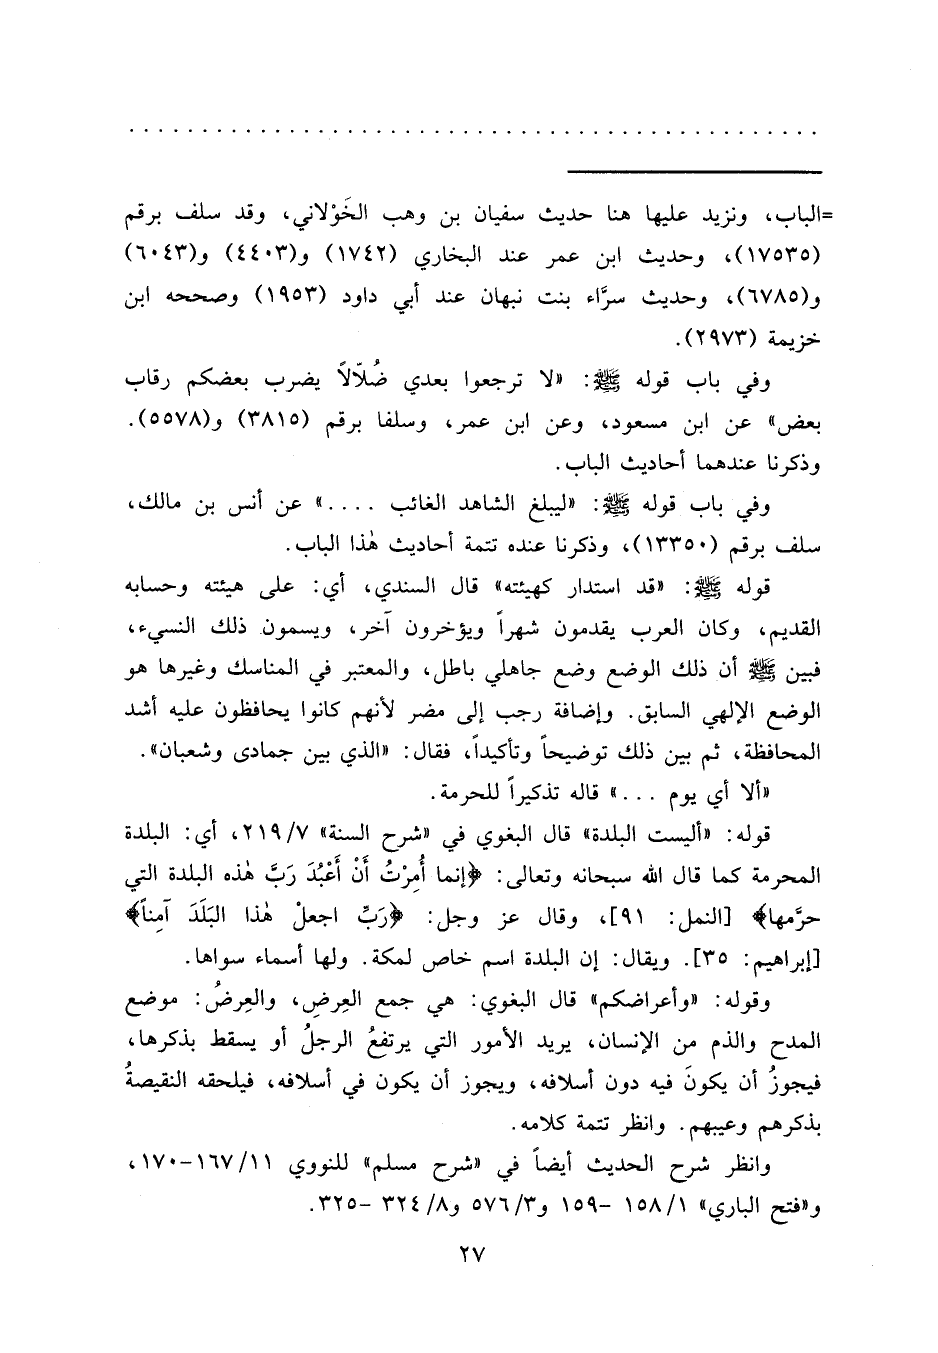 =الباب، ونزيد عليها هنا حديث سفيان بن وهب الخَوْلاني، وقد سلف برقم
(١٧٥٣٥)، وحديث ابن عمر عند البخاري (١٧٤٢) و(٤٤٠٣) و(٦٠٤٣)
و(٦٧٨٥)، وحديث سرَّاء بنت نبهان عند أبي داود (١٩٥٣) وصححه ابن
خزيمة (٢٩٧٣).
وفي باب قوله ﷺ: «لا ترجعوا بعدي ضُلّالاً يضرب بعضكم رقاب
بعض» عن ابن مسعود، وعن ابن عمر، وسلفا برقم (٣٨١٥) و(٥٥٧٨).
وذكرنا عندهما أحاديث الباب.
وفي باب قوله ﷺ: «ليبلغ الشاهد الغائب ....» عن أنس بن مالك،
سلف برقم (١٣٣٥٠)، وذكرنا عنده تتمة أحاديث هٰذا الباب.
قوله ﷺ: «قد استدار كهيئته» قال السندي، أي: على هيئته وحسابه
القديم، وكان العرب يقدمون شهراً ويؤخرون آخر، ويسمون ذلك النسيء،
فبين ﷺ أن ذلك الوضع وضع جاهلي باطل، والمعتبر في المناسك وغيرها هو
الوضع الإلهي السابق. وإضافة رجب إلى مضر لأنهم كانوا يحافظون عليه أشد
المحافظة، ثم بين ذلك توضيحاً وتأكيداً، فقال: «الذي بين جمادى وشعبان».
«ألا أي يوم ...» قاله تذكيراً للحرمة.
قوله: «أليست البلدة» قال البغوي في «شرح السنة» ٢١٩/٧، أي: البلدة
المحرمة كما قال الله سبحانه وتعالى: ﴿إنما أُمِرْتُ أَنْ أَعْبُدَ رَبَّ هٰذه البلدة التي
حرَّمها﴾ [النمل: ٩١]، وقال عز وجل: ﴿رَبِّ اجعلْ هٰذا البَلَدَ آمِناً﴾
[إبراهيم: ٣٥]. ويقال: إن البلدة اسم خاص لمكة. ولها أسماء سواها.
وقوله: «وأعراضكم» قال البغوي: هي جمع العِرضِ، والعِرضُ: موضع
المدح والذم من الإنسان، يريد الأمور التي يرتفعُ الرجلُ أو يسقط بذكرها،
فيجوزُ أن يكونَ فيه دون أسلافه، ويجوز أن يكون في أسلافه، فيلحقه النقيصةُ
بذكرهم وعيبهم. وانظر تتمة كلامه.
وانظر شرح الحديث أيضاً في «شرح مسلم» للنووي ١٦٧/١١-١٧٠،
و«فتح الباري» ١٥٨/١ -١٥٩ و٥٧٦/٣ و٣٢٤/٨ -٣٢٥.
٢٧